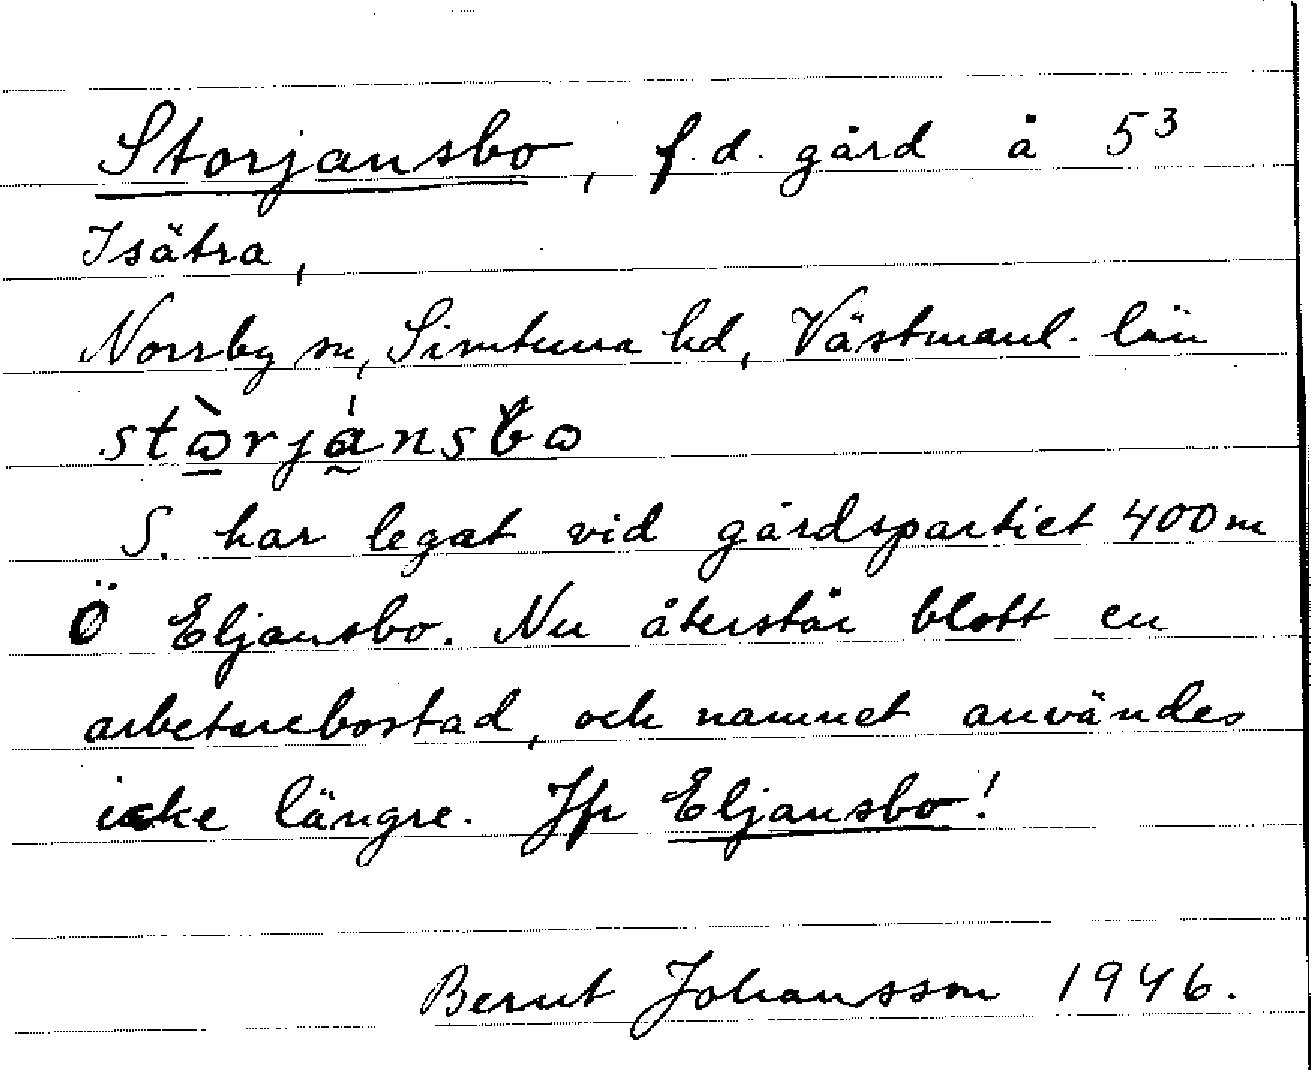 Storjansbo, f.d. gård å 5³
Isätra,
Norrby sn, Simtuna hd, Västmanl. län
stὼrjánsbɷ
S. har legat vid gårdspartiet 400 m
Ö Eljansbo. Nu återstår blott en
arbetarebostad, och namnet användes
icke längre. Jfr Eljansbo!
Bernt Johansson 1946.